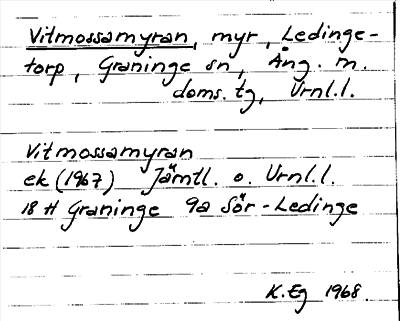 Vitmossamyran, myr, Ledinge-
torp, Graninge sn, Ång. m.
doms. tg, Vrnl.l.
Vitmossamyran
ek (1967) Jämtl. o. Vrnl.l.
18 H Graninge 9a Sör-Ledinge
K.Eg 1968